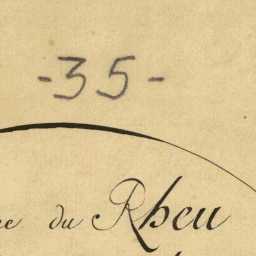 -35-
du Rheu